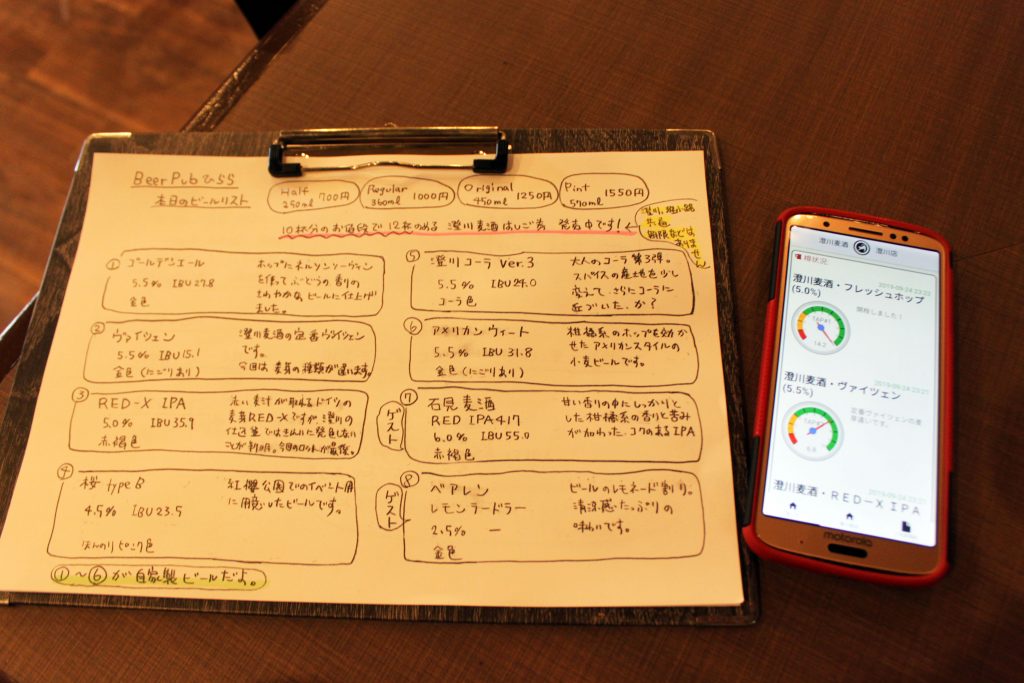 Beer Pub ひらら
本日のビールリスト
Half 700円
250ml
Regular 1000円
360ml
Original 1250円
450ml
Pint 1550円
570ml
10杯分のお値段で12杯のめる 澄川麦酒はしご券 発売中です！
澄川、狸小路
共通
期限などは
ありません
① ゴールデンエール
5.5% IBU27.8
金色
ホップにネルソンソーヴィン
を使ってぶどうの香りの
さわやかなビールに仕上げ
ました。
② ヴァイツェン
5.5% IBU15.1
金色(にごりあり)
澄川麦酒の定番ヴァイツェン
です。
今回は麦芽の種類が違います。
③ RED-X IPA
5.0% IBU35.9
赤褐色
赤い麦汁が取れるドイツの
麦芽RED-Xですが、澄川の
仕込釜ではきれいに発色しない
ことが判明。今回のロットが最後。
④ 桜 type B
4.5% IBU23.5
ほんのりピンク色
紅櫻公園でのイベント用
に用意したビールです。
⑤ 澄川コーラ Ver.3
5.5% IBU24.0
コーラ色
大人のコーラ第3弾。
スパイスの産地を少し
変えて、さらにコーラに
近づいたか？
⑥ アメリカンウィート
5.5% IBU31.8
金色(にごりあり)
柑橘系のホップを効か
せたアメリカンスタイルの
小麦ビールです。
⑦ ゲスト
石見麦酒
RED IPA417
6.0% IBU55.0
赤褐色
甘い香りの中にしっかりと
した柑橘系の香りと苦み
が加わった、コクのあるIPA
⑧ ゲスト
ベアレン
レモンラードラー
2.5% —
金色
ビールのレモネード割り。
清涼感たっぷりの
味わいです。
①〜⑥が自家製ビールだよ。
澄川麦酒 澄川店
樽状況
2019-09-24 23:22
澄川麦酒・フレッシュホップ
(5.0%)
開栓しました！
TAP#1
14.2
2019-09-24 23:21
澄川麦酒・ヴァイツェン
(5.5%)
定番ヴァイツェンの麦
芽違いです。
6.8
2019-09-24 23:21
澄川麦酒・RED-X IPA
motorola